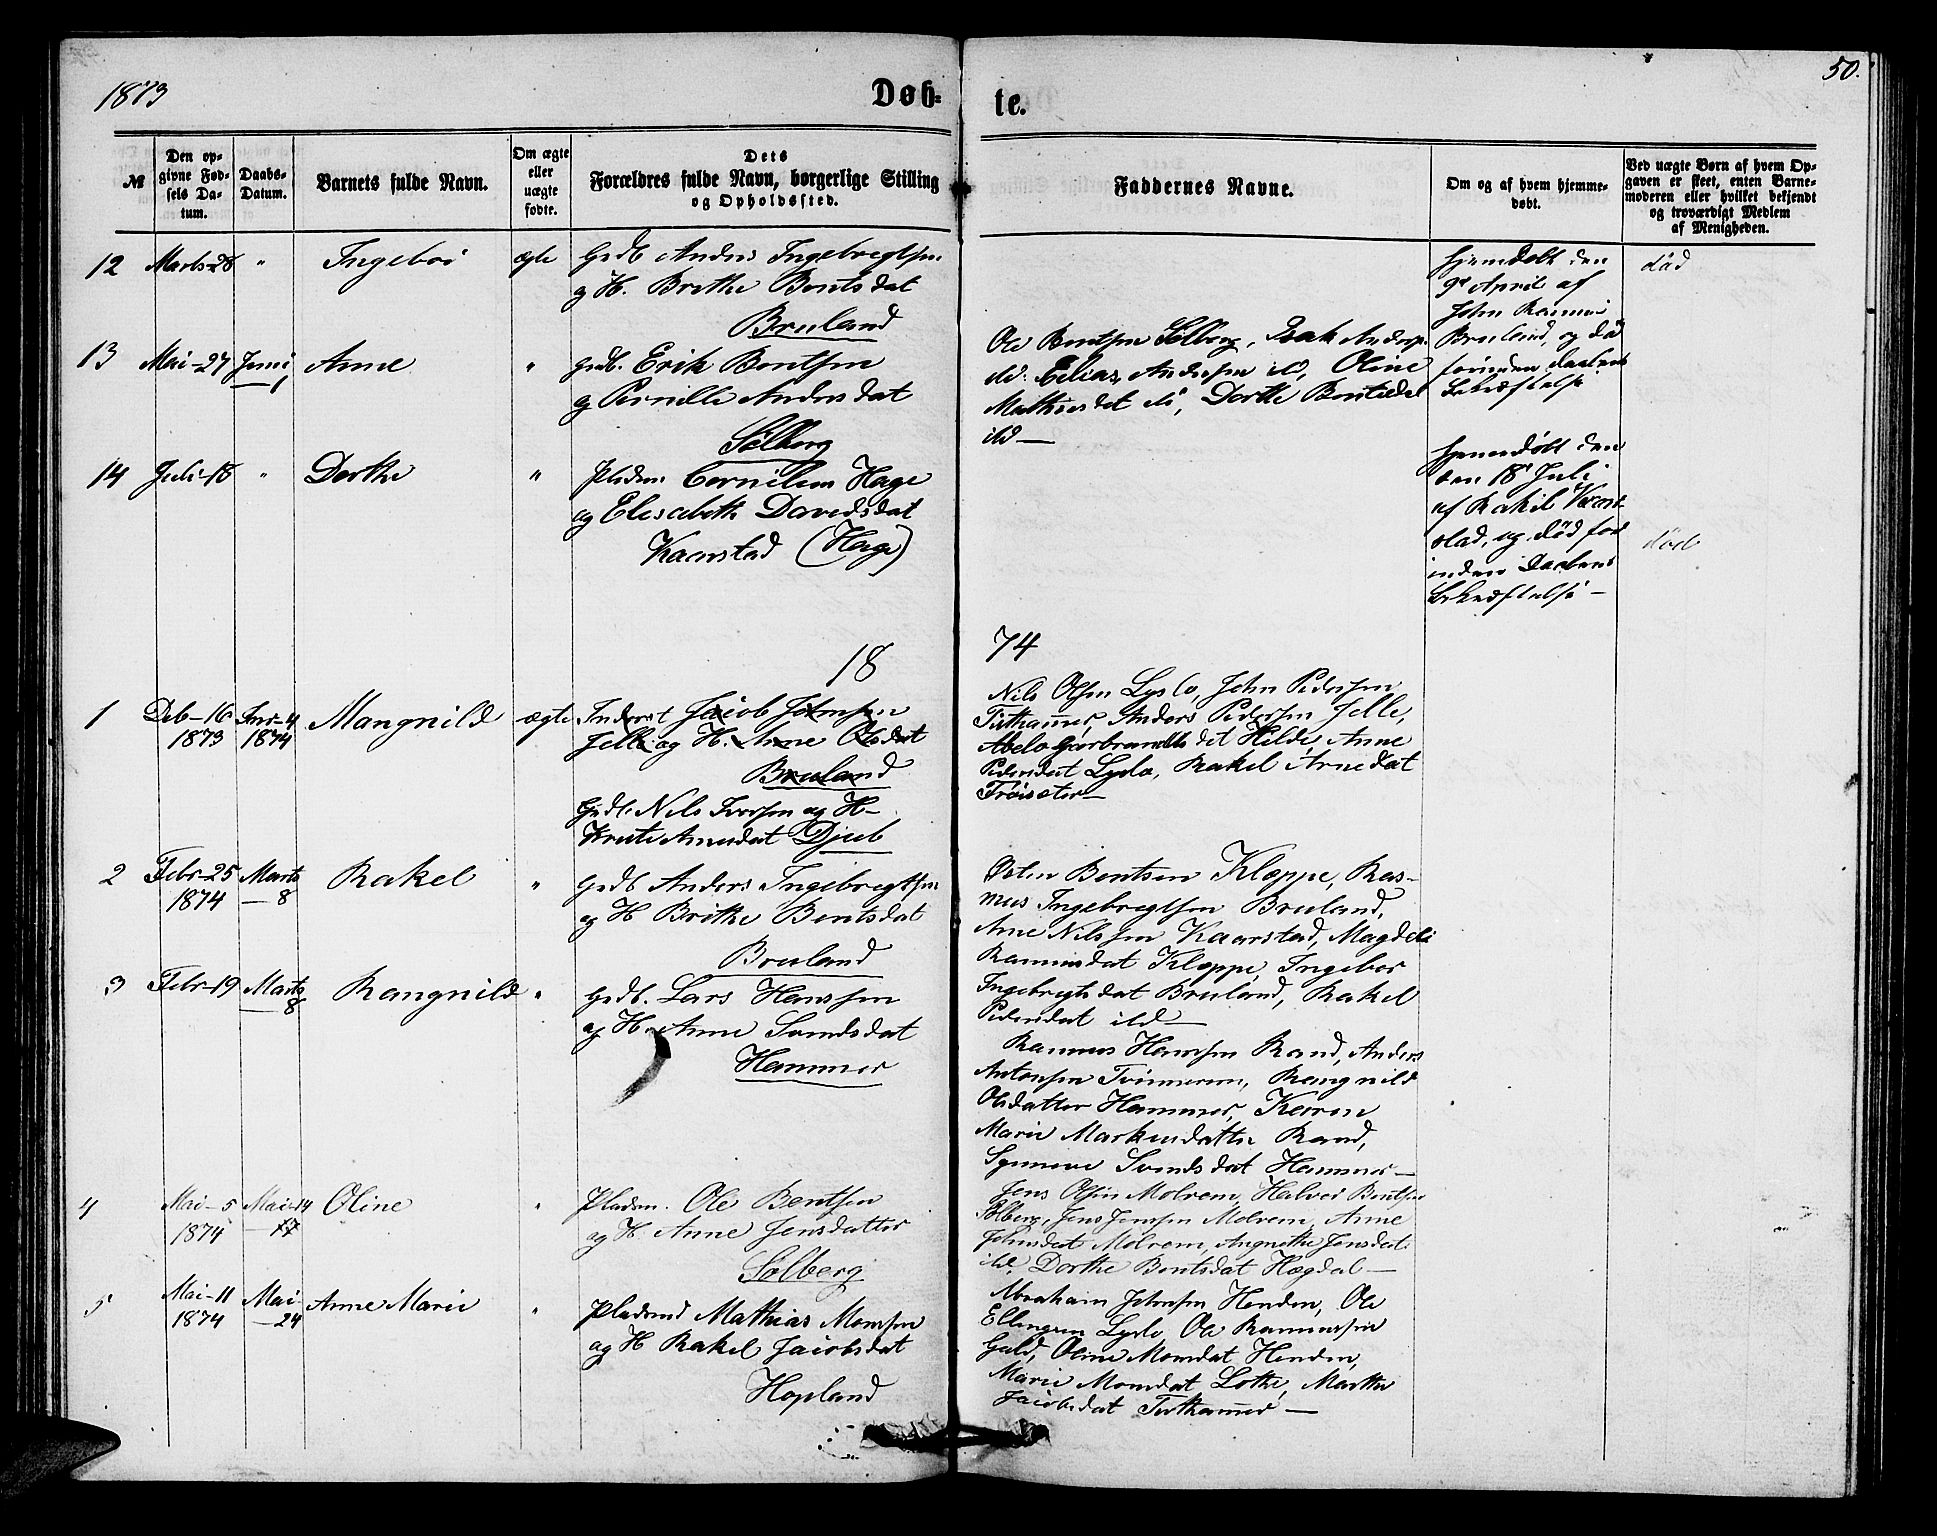 1873
Døb-
te.
50.
№
Den op-
givne Fød-
sels Da-
tum.
Daabs-
Datum.
Barnets fulde Navn.
Om ægte
eller
uægte
fødte.
Dets
Forældres fulde Navn, borgerlige Stilling
og Opholdssted.
Faddernes Navne.
Om og af hvem hjemme-
døbt.
Ved uægte Børn af hvem Op-
gaven er skeet, enten Barne-
moderen eller hvilket bekjendt
og troværdigt Medlem
af Menigheden.
12 Marts 28 " Ingebor ægte Grdb Anders Ingebregtsen
og H. Brithe Bentsdat
Bruland
hjemdøbt den
9de April af
John
Bruland, og død
forinden Daabens
Bekræftelse
død
13 Mai-27 Juni 1 Anne " Grdb. Erik Bentsen
og Pernille Andersdat
Solberg
Ole Bentsen Solberg, Isak Anders
Elias Andersen ib, Oline
Mathiesdat ib, Dorthe Bentsdat
ibd —
14 Juli-18 " Dorthe " Pladsm. Cornilius Hage
og Elisabeth Davidsdat
Kaarstad (Hage)
hjemmedøbt den
den 18 Juli
af Rakel Kaar-
stad, og død for
inden Daabens
Bekræftelse —
død
18
74
1 Deb-16 1873 Jnr-4 1874 Mangnild ægte Inderst Jacob Johnsen
Jelle og H. Anne Olsdat
Bruland
Grdb. Nils Iversen og H-
Arnesdat Djub
Nils Olsen Lyslo, John Pedersen
Tisthammer, Anders Pedersen Jelle,
Abelo Garbrandsdat Hilde, Anne
Pedersdat Lyslo, Rakel Arnedat
Troisæter —
2 Febr-25 1874 Marts — 8 Rakel " Grdb Anders Ingebregtsen
og H Brithe Bentsdat
Bruland
Bentsen Kloppe, Ras-
mus Ingebregtsen Bruland,
Arne Nilssen Kaarstad, Magdeli
Rasmusdat Kloppe, Ingebor
Ingebregtsdat Bruland, Rakel
Pedersdat ibd —
3 Febr-19 Marts 8 Rangnild " Grdb. Lars Hanssen
og H. Anne Svendsdat
Hammer
Rasmus Hanssen Rand, Anders
Antonsen Tvinnerem, Rangnild
Olsdatter Hammer, Karen
Marie Markusdatter Rand,
Synneve Svendsdat Hammer —
4 Mai-5 1874 Mai-14 — 17 Oline " Pladsm. Ole Bentsen
og H Anne Jensdatter
Solberg
Jens Olsen Molrem, Halvor Bentsen
Solberg, Jens Jenssen Molrem, Anne
Johnsdat Molrem, Angnethe Jensdat
ibd, Dorthe Bentsdat Hægdal —
5 Mai-11 1874 Mai — 24 Anne Marie " Pladsmd Mathias Monssen
og H Rakel Jacobsdat
Hopland
Abraham Johnsen Henden, Ole
Ellingsen Lyslo, Ole Rasmussen
Guld, Oline Monsdat Henden,
Marie Monsdat Lothe, Marthe
Jacobsdat Tisthammer —